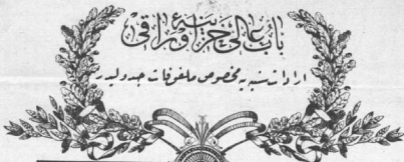 باب عالی خزینهٔ اوراقی
ارادات سنیه یه مخصوص ملفوفات جدولیدر